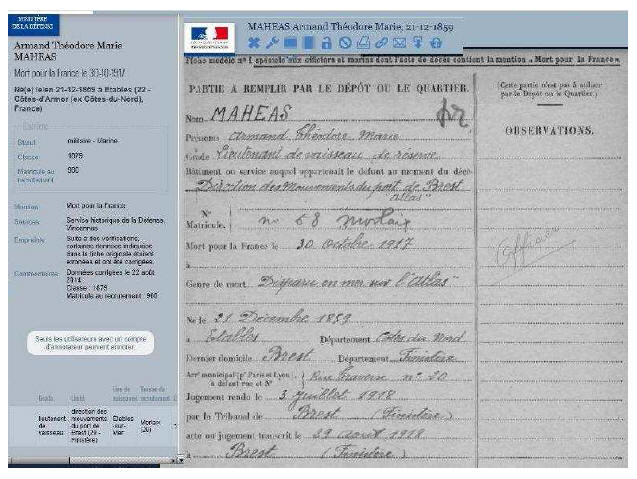 MINISTÈRE
DE LA DÉFENSE
Armand Théodore Marie
MAHEAS
Mort pour la France le 30-10-1917
Né(e) le/en 21-12-1859 à Etables (22 -
Côtes-d'Armor (ex Côtes-du-Nord),
France)
Carrière
Statut militaire - Marine
Classe 1879
Matricule au recrutement 960
Mention Mort pour la France
Sources Service historique de la Défense,
Vincennes
Suite à des vérifications,
certaines données indiquées
dans la fiche originale étaient
erronées et ont été corrigées.
Commentaires Données corrigées le 22 août
2014
Classe : 1879
Matricule au recrutement : 960
Seuls les utilisateurs avec un compte
d'annotateur peuvent annoter.
Grade Unité Lieu de naissance Bureau de recrutement
lieutenant de vaisseau
direction des mouvements du port de Brest (29 - Finistère)
Etables-sur-Mer
Morlaix (29)
MAHEAS Armand Théodore Marie, 21-12-1859
Fiche modèle n° 1 spéciale aux officiers et marins dont l'acte de décès contient la mention « Mort pour la France »
PARTIE A REMPLIR PAR LE DÉPÔT OU LE QUARTIER.
Nom MAHEAS
Prénoms Armand Théodore Marie
Grade Lieutenant de vaisseau de réserve
Bâtiment ou service auquel appartenait le défunt au moment du décès
Direction des Mouvements du port de Brest
atlas"
N°
Matricule. no 68 Morlaix
Mort pour la France le 30 Octobre 1917
à
Genre de mort Disparu en mer sur l'"Atlas"
Né le 21 Décembre 1859
à Etables Département Côtes du Nord
Dernier domicile Brest Département Finistère
Arrt municipal (pr Paris et Lyon)
à défaut rue et N° Rue Traverse n° 30
Jugement rendu le 3 juillet 1918
par le Tribunal de Brest (Finistère)
acte ou jugement transcrit le 29 août 1918
à Brest (Finistère)
Cette partie n'est pas à utiliser
par le Dépôt ou le Quartier.)
OBSERVATIONS.
Officier